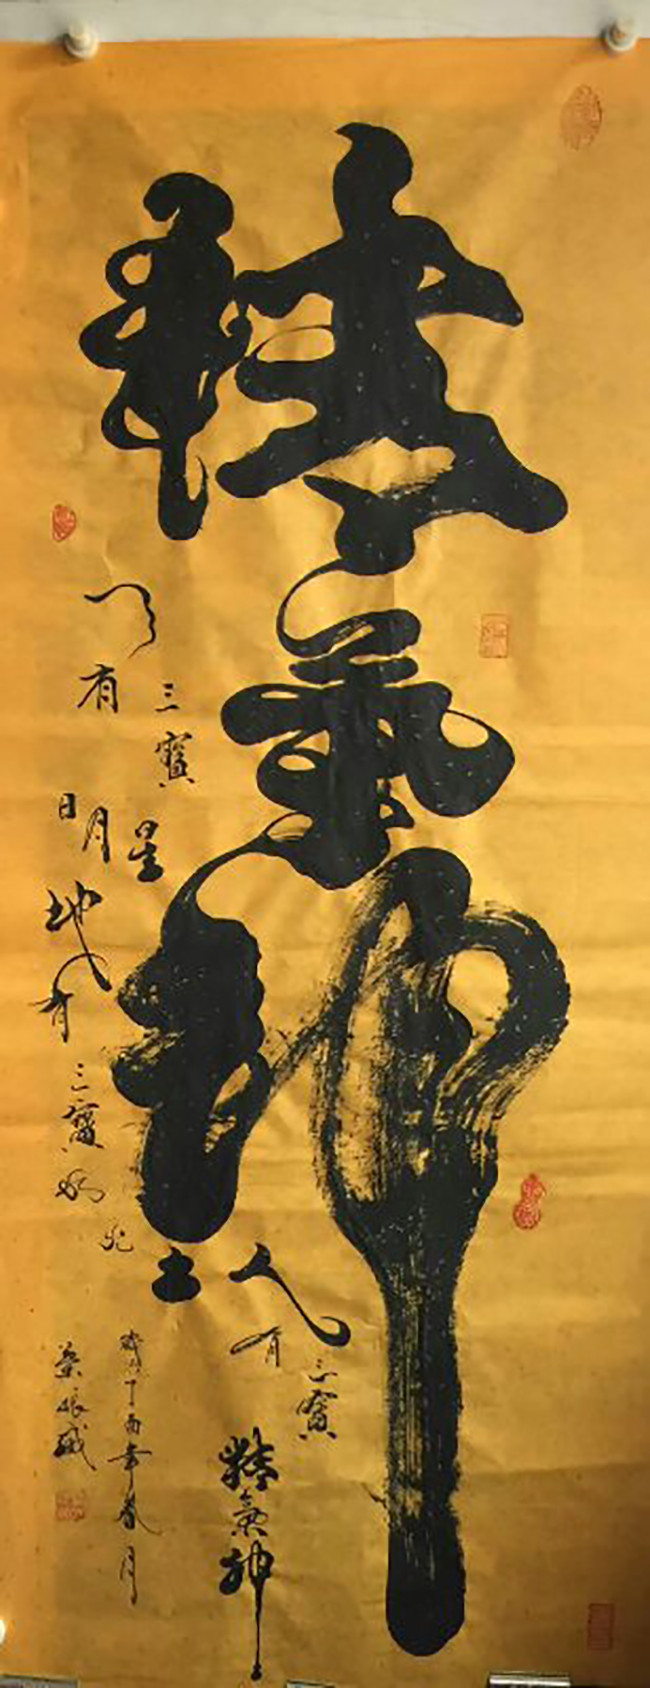 精氣神
天有三寶
日月星
地有三寶水火土
人有三寶
精氣神
歲次丁酉年春月